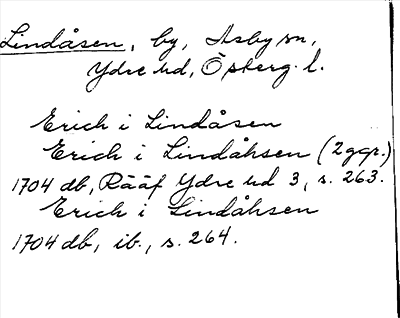 Lindåsen, by, Asby sn,
Ydre hd, Österg. l.
Erich i Lindåsen
Erich i Lindåhsen (2 ggr.)
1704 db, Rääf Ydre hd 3, s. 263.
Erich i Lindåhsen
1704 db, ib., s. 264.